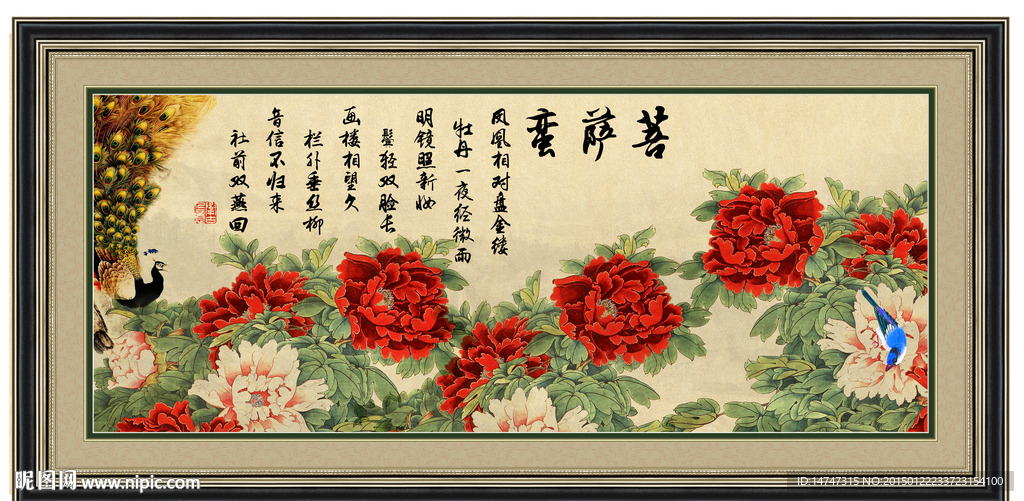 菩萨蛮
凤凰相对盘金缕
牡丹一夜经微雨
明镜照新妆
鬓轻双脸长
画楼相望久
栏外垂丝柳
音信不归来
社前双燕回
昵图网 www.nipic.com
ID:14747315 NO:20150122233723154100